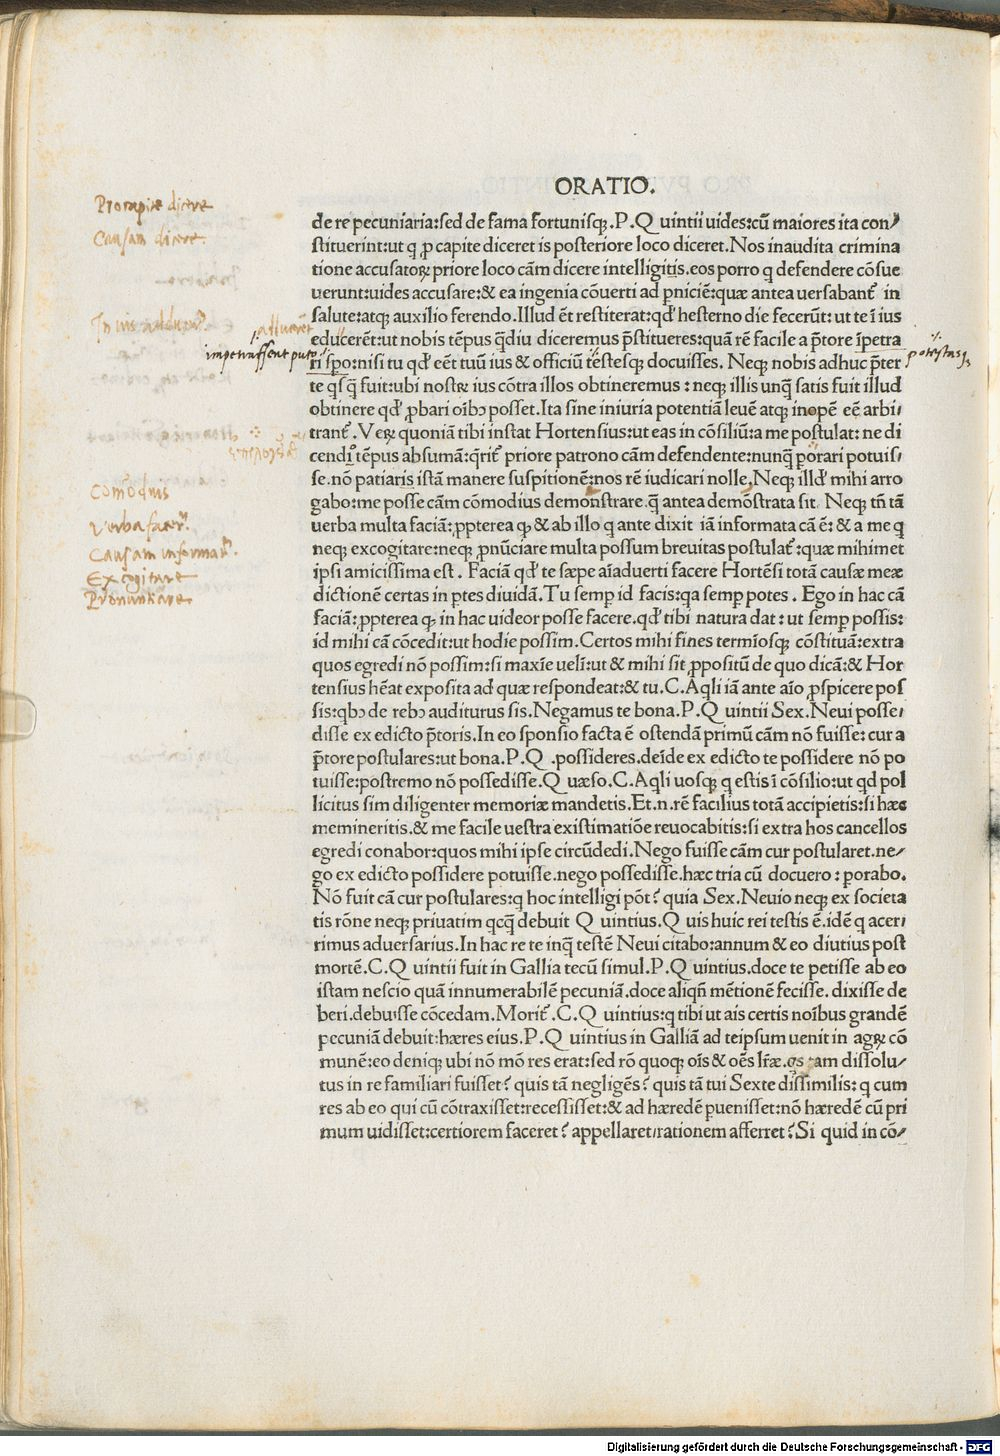 ORATIO.
de re pecuniaria:sed de fama fortunisq;.P.Q uintii uides:cũ maiores ita con/
stituerint:ut q ꝓ capite diceret is posteriore loco diceret.Nos inaudita crimina
tione accusatoꝝ priore loco cãm dicere intelligitis.eos porro q defendere cõsue
uerunt:uides accusare:& ea ingenia cõuerti ad ꝑniciẽ:quæ antea uersabant᷑ in
salute:atq; auxilio ferendo.Illud ẽt restiterat:qđ hesterno die fecerũt: ut te ĩ ius
educerẽt:ut nobis tẽpus q̃diu diceremus p̃stitueres:quã rẽ facile a p̃tore ĩpetra
ri spo:nisi tu qđ eẽt tuũ ius & officiũ ꝑtestesq; docuisses. Neq; nobis adhuc p̃ter
te qsq̃ fuit:ubi nostꝝ ius cõtra illos obtineremus : neq; illis unq̃ satis fuit illud
obtinere qđ ꝓbari oĩbꝯ posset.Ita sine iniuria potentiã leuẽ atq; inopẽ eẽ arbi/
trant᷑.Veꝝ quoniã tibi instat Hortensius:ut eas in cõsiliũ:a me postulat: ne di
cendi tẽpus absumã:qrit᷑ priore patrono cãm defendente:nunq̃ ꝑorari potuis/
se.nõ patiaris istã manere suspitionẽ:nos rẽ iudicari nolle.Neq; illđ mihi arro
gabo:me posse cãm cõmodius demonstrare.q̃ antea demõstrata sit. Neq; tñ tã
uerba multa faciã:ꝓpterea ꝙ & ab illo q ante dixit iã informata cã ẽ: & a me q
neq; excogitare:neq; ꝓnũciare multa possum breuitas postulat᷑:quæ mihimet
ipsi amicissima est. Faciã qđ te sæpe aĩaduerti facere Hortẽsi totã causæ meæ
dictionẽ certas in ꝑtes diuidã.Tu semꝑ id facis:qa semꝑ potes. Ego in hac cã
faciã:ꝓpterea ꝙ in hac uideor posse facere.qđ tibi natura dat : ut semꝑ possis:
id mihi cã cõcedit:ut hodie possim.Certos mihi fines termĩosq; cõstituã:extra
quos egredi nõ possim:si maxĩe ueli:ut & mihi sit ꝓpositũ de quo dicã:& Hor
tensius hẽat exposita ad quæ respondeat:& tu.C.Aqli iã ante aĩo ꝓspicere pos
sis:qbꝯ de rebꝯ auditurus sis.Negamus te bona.P.Q uintii Sex.Neui posse/
disse ex edicto p̃toris.In eo sponsio facta ẽ ostendã primũ cãm nõ fuisse: cur a
p̃tore postulares:ut bona.P.Q .possideres.deĩde ex edicto te possidere nõ po
tuisse:postremo nõ possedisse.Q uæso.C.Aqli uosq; q estis ĩ cõsilio:ut qd pol
licitus sim diligenter memoriæ mandetis.Et.n.rẽ facilius totã accipietis:si hæc
memineritis.& me facile uestra existimatiõe reuocabitis:si extra hos cancellos
egredi conabor:quos mihi ipse circũdedi.Nego fuisse cãm cur postularet.ne/
go ex edicto possidere potuisse.nego possedisse.hæc tria cũ docuero : ꝑorabo.
Nõ fuit cã cur postulares:q hoc intelligi põt? quia Sex.Neuio neq; ex societa
tis rõne neq; priuatim qcq̃ debuit Q uintius.Q uis huic rei testis ẽ.idẽ q acer/
rimus aduersarius.In hac re te inq̃ testẽ Neui citabo:annum & eo diutius post
mortẽ.C.Q uintii fuit in Gallia tecũ simul.P.Q uintius.doce te petisse ab eo
istam nescio quã innumerabilẽ pecuniã.doce aliqñ mẽtionẽ fecisse. dixisse de
beri.debuisse cõcedam.Morit᷑.C.Q uintius:q tibi ut ais certis noĩbus grandẽ
pecuniã debuit:hæres eius.P.Q uintius in Galliã ad teipsum uenit in agꝝ cõ
munẽ:eo deniq; ubi nõ mõ res erat:sed rõ quoq; oĩs & oẽs lr̃æ. am dissolu/
tus in re familiari fuisset? quis tã negligẽs? quis tã tui Sexte dissimilis: q cum
res ab eo qui cũ cõtraxisset:recessisset:& ad hæredẽ ꝑuenisset:nõ hæredẽ cũ pri
mum uidisset:certiorem faceret? appellaret/rationem afferret? Si quid in cõ/
Pro capite dicere
Causam dicere
In ius
adduxerẽt
impetrassent puto
potestasq;
Comodius
Verba facer̃.
Causam informar̃.
Excogitare
Pronuntiare
Digitalisierung gefördert durch die Deutsche Forschungsgemeinschaft - DFG